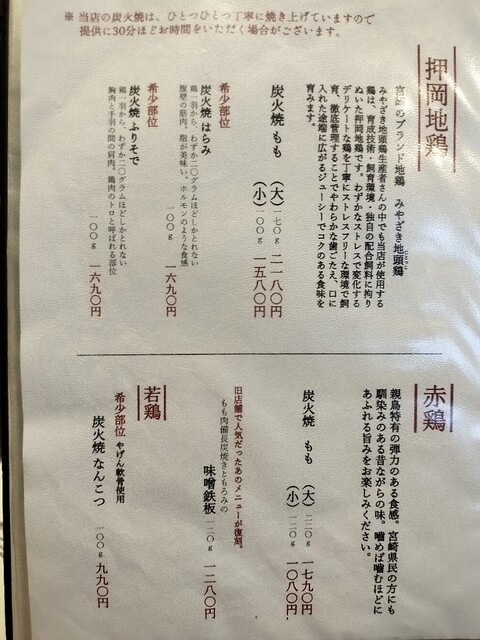 ※ 当店の炭火焼は、ひとつひとつ丁寧に焼き上げていますので
提供に30分ほどお時間をいただく場合がございます。
押岡地鶏
のブランド地鶏 みやざき地頭鶏
みやざき地頭鶏生産者さんの中でも当店が使用する
鶏は、育成技術・飼育環境・独自の配合飼料に拘り
ぬいた押岡地鶏です。わずかなストレスで変化する
デリケートな鶏を丁寧にストレスフリーな環境で飼
育、徹底管理することでやわらかな歯ごたえ、口に
入れた途端に広がるジューシーでコクのある食味を
育みます。
炭火焼 もも (大) 一七〇g 二一八〇円
(小) 一〇〇g 一五八〇円
希少部位
炭火焼 はらみ
鶏一羽から、わずか二〇グラムほどしかとれない
腹壁の筋肉。脂が美味い、ホルモンのような食感
一〇〇g 一六九〇円
希少部位
炭火焼 ふりそで
鶏一羽から、わずか二〇グラムほどしかとれない
胸肉と手羽の間の肩肉。鶏肉のトロと呼ばれる部位
一〇〇g 一六九〇円
赤鶏
親鳥特有の弾力のある食感。宮崎県民の方にも
馴染みのある昔ながらの味。噛めば噛むほどに
あふれる旨みをお楽しみください。
炭火焼 もも (大) 二二〇g 一七九〇円
(小) 一二〇g 一〇八〇円
旧店舗で人気だったあのメニューが復刻。
もも肉備長炭焼きともろみの
味噌鉄板 一二〇g 一二八〇円
若鶏
希少部位 やげん軟骨使用
炭火焼 なんこつ 一〇〇g 九九〇円